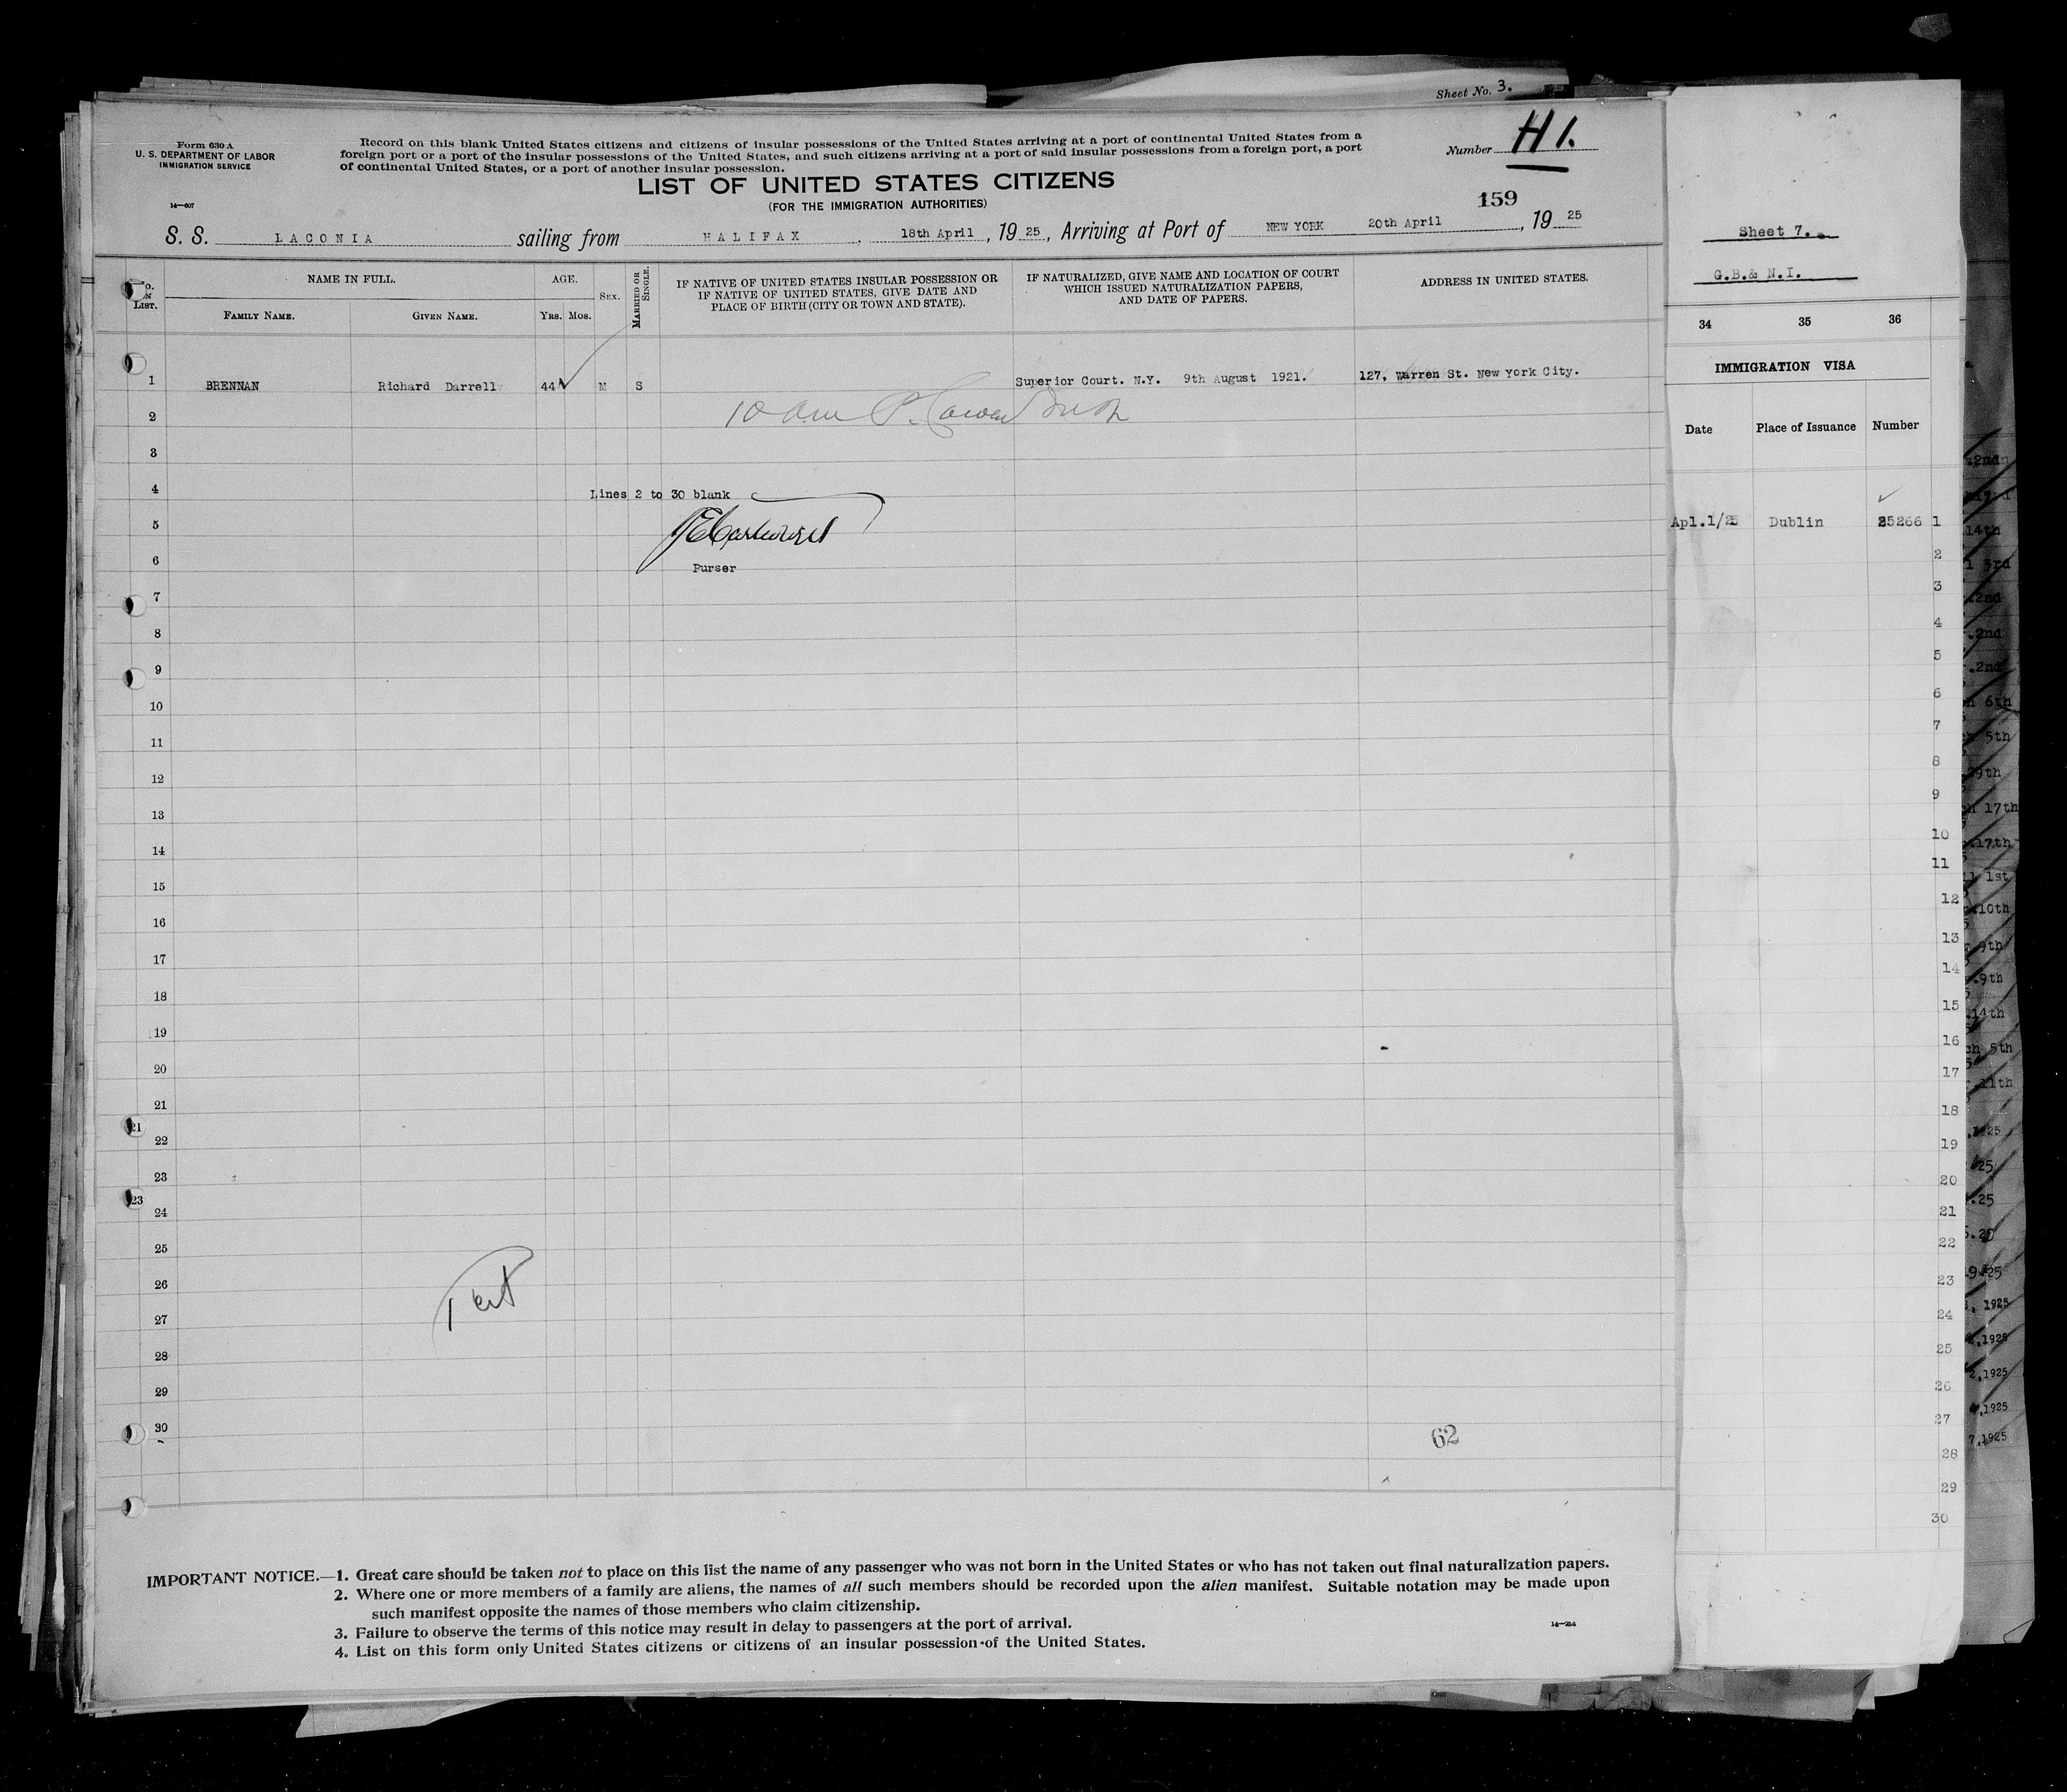 Sheet No. 3.
Form 630 A
U. S. DEPARTMENT OF LABOR
IMMIGRATION SERVICE
14—607
Record on this blank United States citizens and citizens of insular possessions of the United States arriving at a port of continental United States from a
foreign port or a port of the insular possessions of the United States, and such citizens arriving at a port of said insular possessions from a foreign port, a port
of continental United States, or a port of another insular possession.
Number H 1.
LIST OF UNITED STATES CITIZENS
(FOR THE IMMIGRATION AUTHORITIES)
159
S. S. LACONIA sailing from HALIFAX, 18th April, 1925, Arriving at Port of NEW YORK 20th April, 1925
LIST.
NAME IN FULL.
FAMILY NAME.
GIVEN NAME.
AGE.
YRS. MOS.
SEX.
MARRIED OR SINGLE.
IF NATIVE OF UNITED STATES INSULAR POSSESSION OR
IF NATIVE OF UNITED STATES, GIVE DATE AND
PLACE OF BIRTH (CITY OR TOWN AND STATE).
IF NATURALIZED, GIVE NAME AND LOCATION OF COURT
WHICH ISSUED NATURALIZATION PAPERS,
AND DATE OF PAPERS.
ADDRESS IN UNITED STATES.
1 BRENNAN Richard Darrell 44 M S Superior Court. N.Y. 9th August 1921. 127, Warren St. New York City.
2
3
4 Lines 2 to 30 blank
5
6 Purser
7
8
9
10
11
12
13
14
15
16
17
18
19
20
21
21
22
23
23
24
25
26
27
28
29
30
62
IMPORTANT NOTICE.—1. Great care should be taken not to place on this list the name of any passenger who was not born in the United States or who has not taken out final naturalization papers.
2. Where one or more members of a family are aliens, the names of all such members should be recorded upon the alien manifest. Suitable notation may be made upon
such manifest opposite the names of those members who claim citizenship.
3. Failure to observe the terms of this notice may result in delay to passengers at the port of arrival.
4. List on this form only United States citizens or citizens of an insular possession of the United States.
14—254
Sheet 7.
G.B.& N.I.
34 35 36
IMMIGRATION VISA
Date Place of Issuance Number
Apl.1/25 Dublin 25266 1
2
3
4
5
6
7
8
9
10
11
12
13
14
15
16
17
18
19
20
21
22
23
24
25
26
27
28
29
30